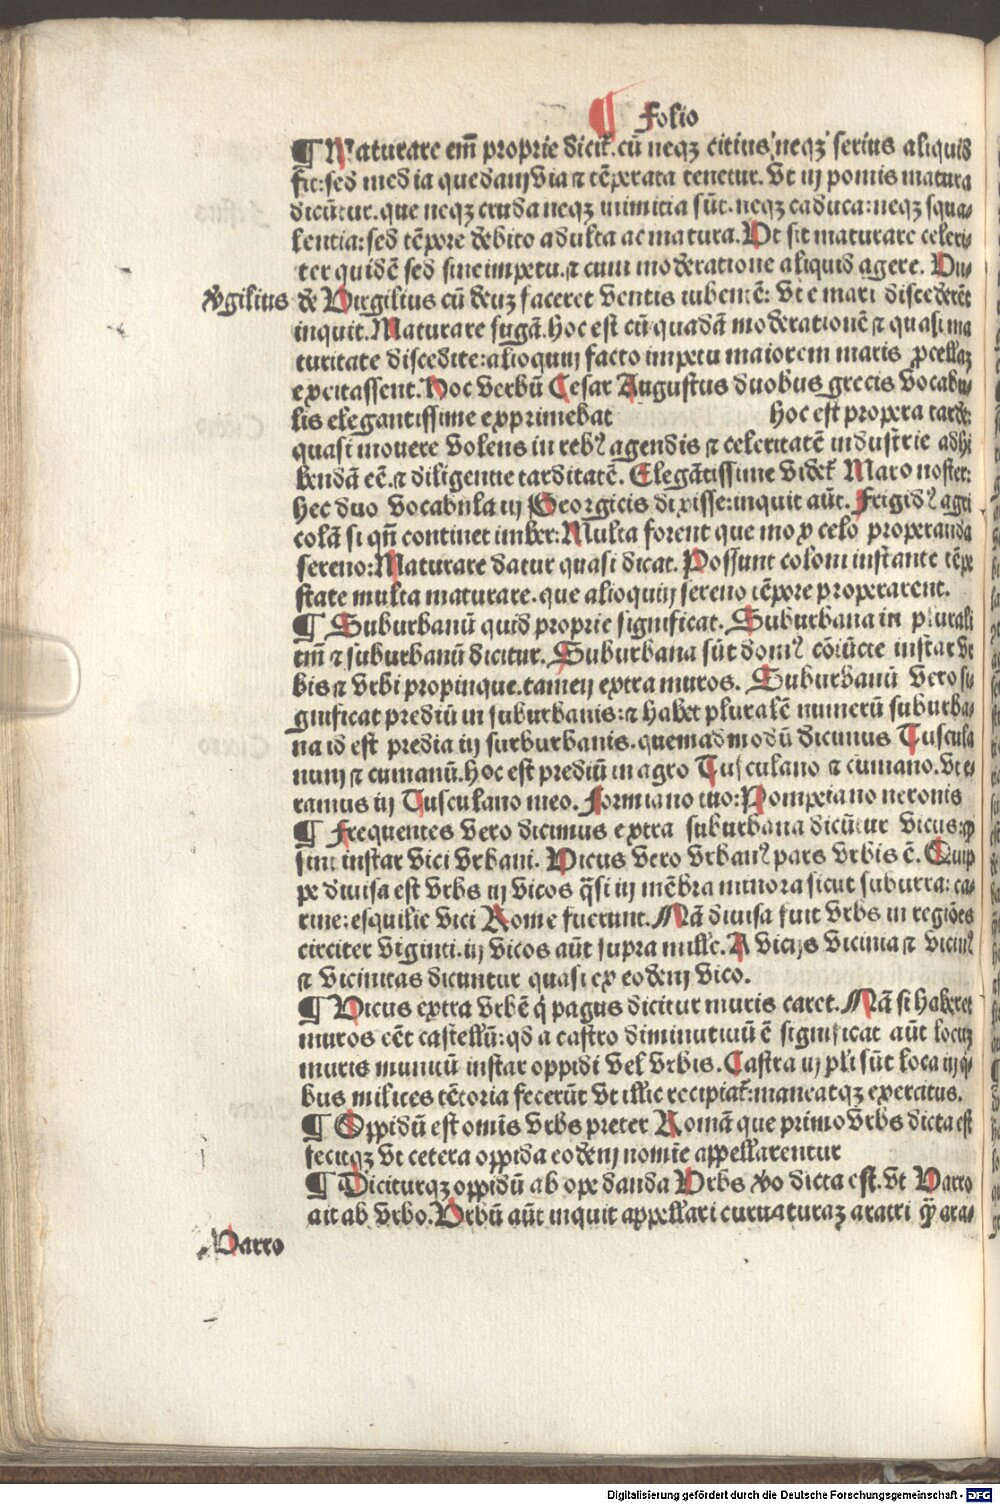 ¶ Folio
¶ Maturare em̄ proprie dicit᷑. cū neqꝫ citius neqꝫ serius aliquid
fit: sed media quedam via ⁊ tēperata tenetur. Vt in pomis matura
dicūtur. que neqꝫ cruda neqꝫ immitia sūt. neqꝫ caduca: neqꝫ squa⸗
lentia: sed tēpore debito adulta ac matura. Vt sit maturare celeri⸗
ter quidē sed sine impetu. ⁊ cum moderatione aliquid agere. Vn⸗
v̄gilius
de Virgilius cū deuꝫ faceret ventis iubentē: vt e mari discederēt
inquit. Maturare fugā. hoc est cū quadā moderationē ⁊ quasi ma
turitate discedite: alioquin facto impetu maiorem maris ꝓcellaꝫ
excitassent. Hoc verbū Cesar Augustus duobus grecis vocabu⸗
lis elegantissime exprimebat hoc est propera tarde:
quasi mouere volens in rebꝰ agendis ⁊ celeritatē industrie adhi
bendā eē. ⁊ diligentie tarditatē. Elegātissime videt᷑ Maro noster:
hec duo vocabula in Georgicis dixisse: inquit aūt. Frigidꝰ agri
colā si qn̄ continet imber: Multa forent que mox celo properanda
sereno: Maturare datur quasi dicat. Possunt coloni instante tēpe
state multa maturare. que alioquin sereno tēpore properarent.
¶ Suburbanū quid proprie significat. Suburbana in plurali
tm̄ ⁊ suburbanū dicitur. Suburbana sūt domꝰ cōiūcte instar vr
bis ⁊ vrbi propinque. tamen extra muros. Suburbanū vero si
gnificat prediū in suburbanis: ⁊ habet pluralē numerū suburba⸗
na id est predia in surburbanis. quemadmodū dicimus Tuscula
num ⁊ cumanū. hoc est prediū in agro Tusculano ⁊ cumano. vt e⸗
ramus in Tusculano meo. Formiano tuo: Pompeiano neronis
¶ Frequentes vero dicimus extra suburbana dicūtur vicus: ꝙ
sint instar vici vrbani. Vicus vero vrbanꝰ pars vrbis ē. Quip
pe diuisa est vrbs in vicos q̄si in mēbra minora sicut suburra: ca⸗
rine: esquilie vici Rome fuerunt. Nā diuisa fuit vrbs in regiōes
circiter viginti. in vicos aūt supra mille. A vicijs vicinia ⁊ vicinꝰ
⁊ vicinitas dicuntur quasi ex eodem vico.
¶ Vicus extra vrbē q̇ pagus dicitur muris caret. Nā si haberet
muros eēt castellū: qd a castro diminutiuū ē significat aūt locuꝫ
muris munitū instar oppidi vel vrbis. Castra in pli sūt loca in q̇⸗
bus milites tētoria fecerūt vt illic recipiat᷑: maneatqꝫ exercitus.
¶ Oppidū est omīs vrbs preter Romā que primo vrbs dicta est
fecitqꝫ vt cetera oppida eodem nomīe appellarentur
¶ Diciturqꝫ oppidū ab ope danda Vrbs v̄o dicta est. vt Varro
ait ab vrbo. Vrbū aūt inquit appellari curuaturaꝫ aratri q̄ꝫ ara⸗
Varro